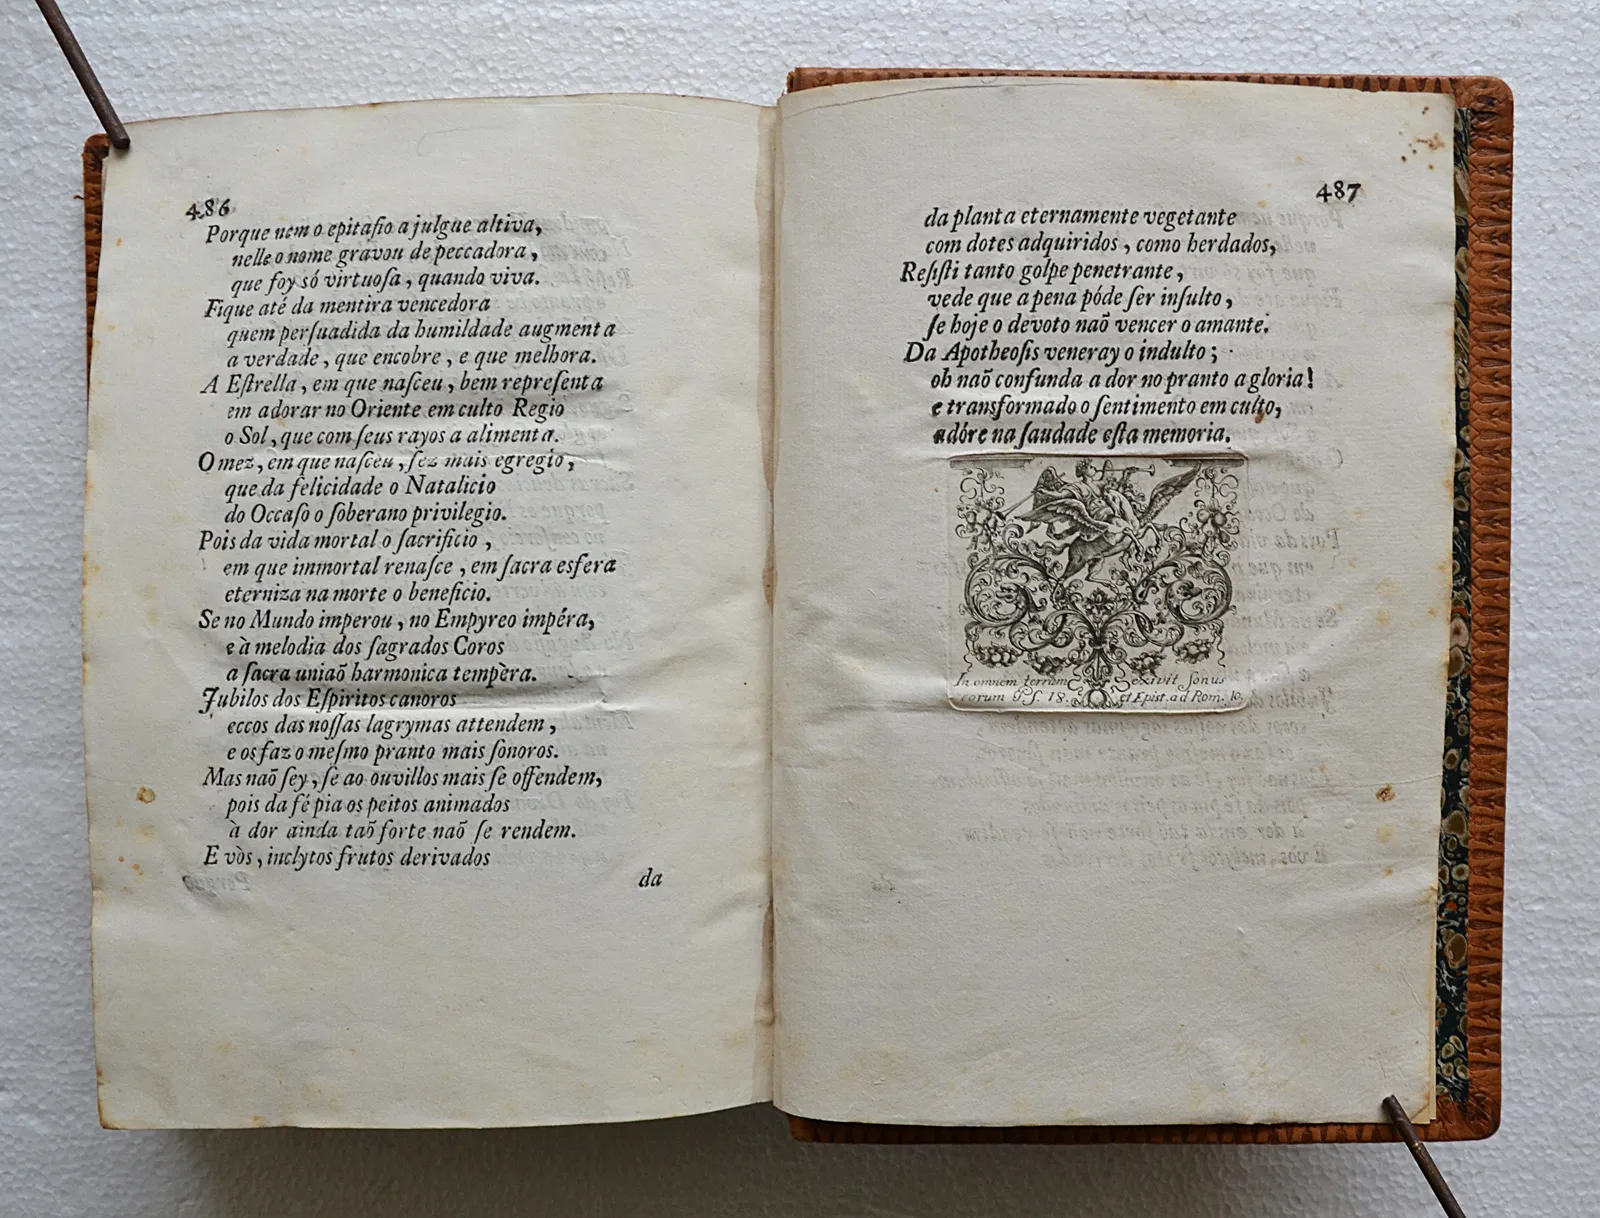 486
Porque nem o epitafio a julgue altiva,
nelle o nome gravou de peccadora,
que foy só virtuoſa, quando viva.
Fique até da mentira vencedora
quem perſuadida da humildade augmenta
a verdade, que encobre, e que melhora.
A Eſtrella, em que naſceu, bem repreſenta
em adorar no Oriente em culto Regio
o Sol, que com ſeus rayos a alimenta.
O mez, em que naſceu, fez mais egregio,
que da felicidade o Natalicio
do Occaſo o ſoberano privilegio.
Pois da vida mortal o ſacrificio,
em que immortal renaſce, em ſacra esfera
eterniza na morte o beneficio.
Se no Mundo imperou, no Empyreo impéra,
e à melodia dos ſagrados Coros
a ſacra uniaõ harmonica tempèra.
Jubilos dos Eſpiritos canoros
eccos das noſſas lagrymas attendem,
e os faz o meſmo pranto mais ſonoros.
Mas naõ ſey, ſe ao ouvillos mais ſe offendem,
pois da fé pia os peitos animados
à dor ainda taõ forte naõ ſe rendem.
E vòs, inclytos frutos derivados
da
487
da planta eternamente vegetante
com dotes adquiridos, como herdados,
Reſiſti tanto golpe penetrante,
vede que a pena póde ſer inſulto,
ſe hoje o devoto naõ vencer o amante.
Da Apotheoſis veneray o indulto;
oh naõ confunda a dor no pranto a gloria!
e transformado o ſentimento em culto,
adóre na ſaudade eſta memoria.
In omnem terram exivit ſonus
eorum Pſ. 18. et Epist. ad Rom. 10.